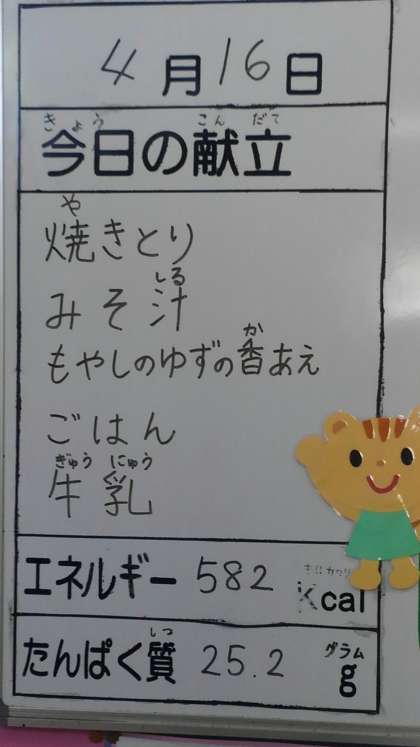 4月16日
きょう こんだて
今日の献立
や
焼きとり
しる
みそ汁
か
もやしのゆずの香あえ
ごはん
ぎゅう にゅう
牛乳
キロカロリー
エネルギー 582 Kcal
しつ グラム
たんぱく質 25.2 g